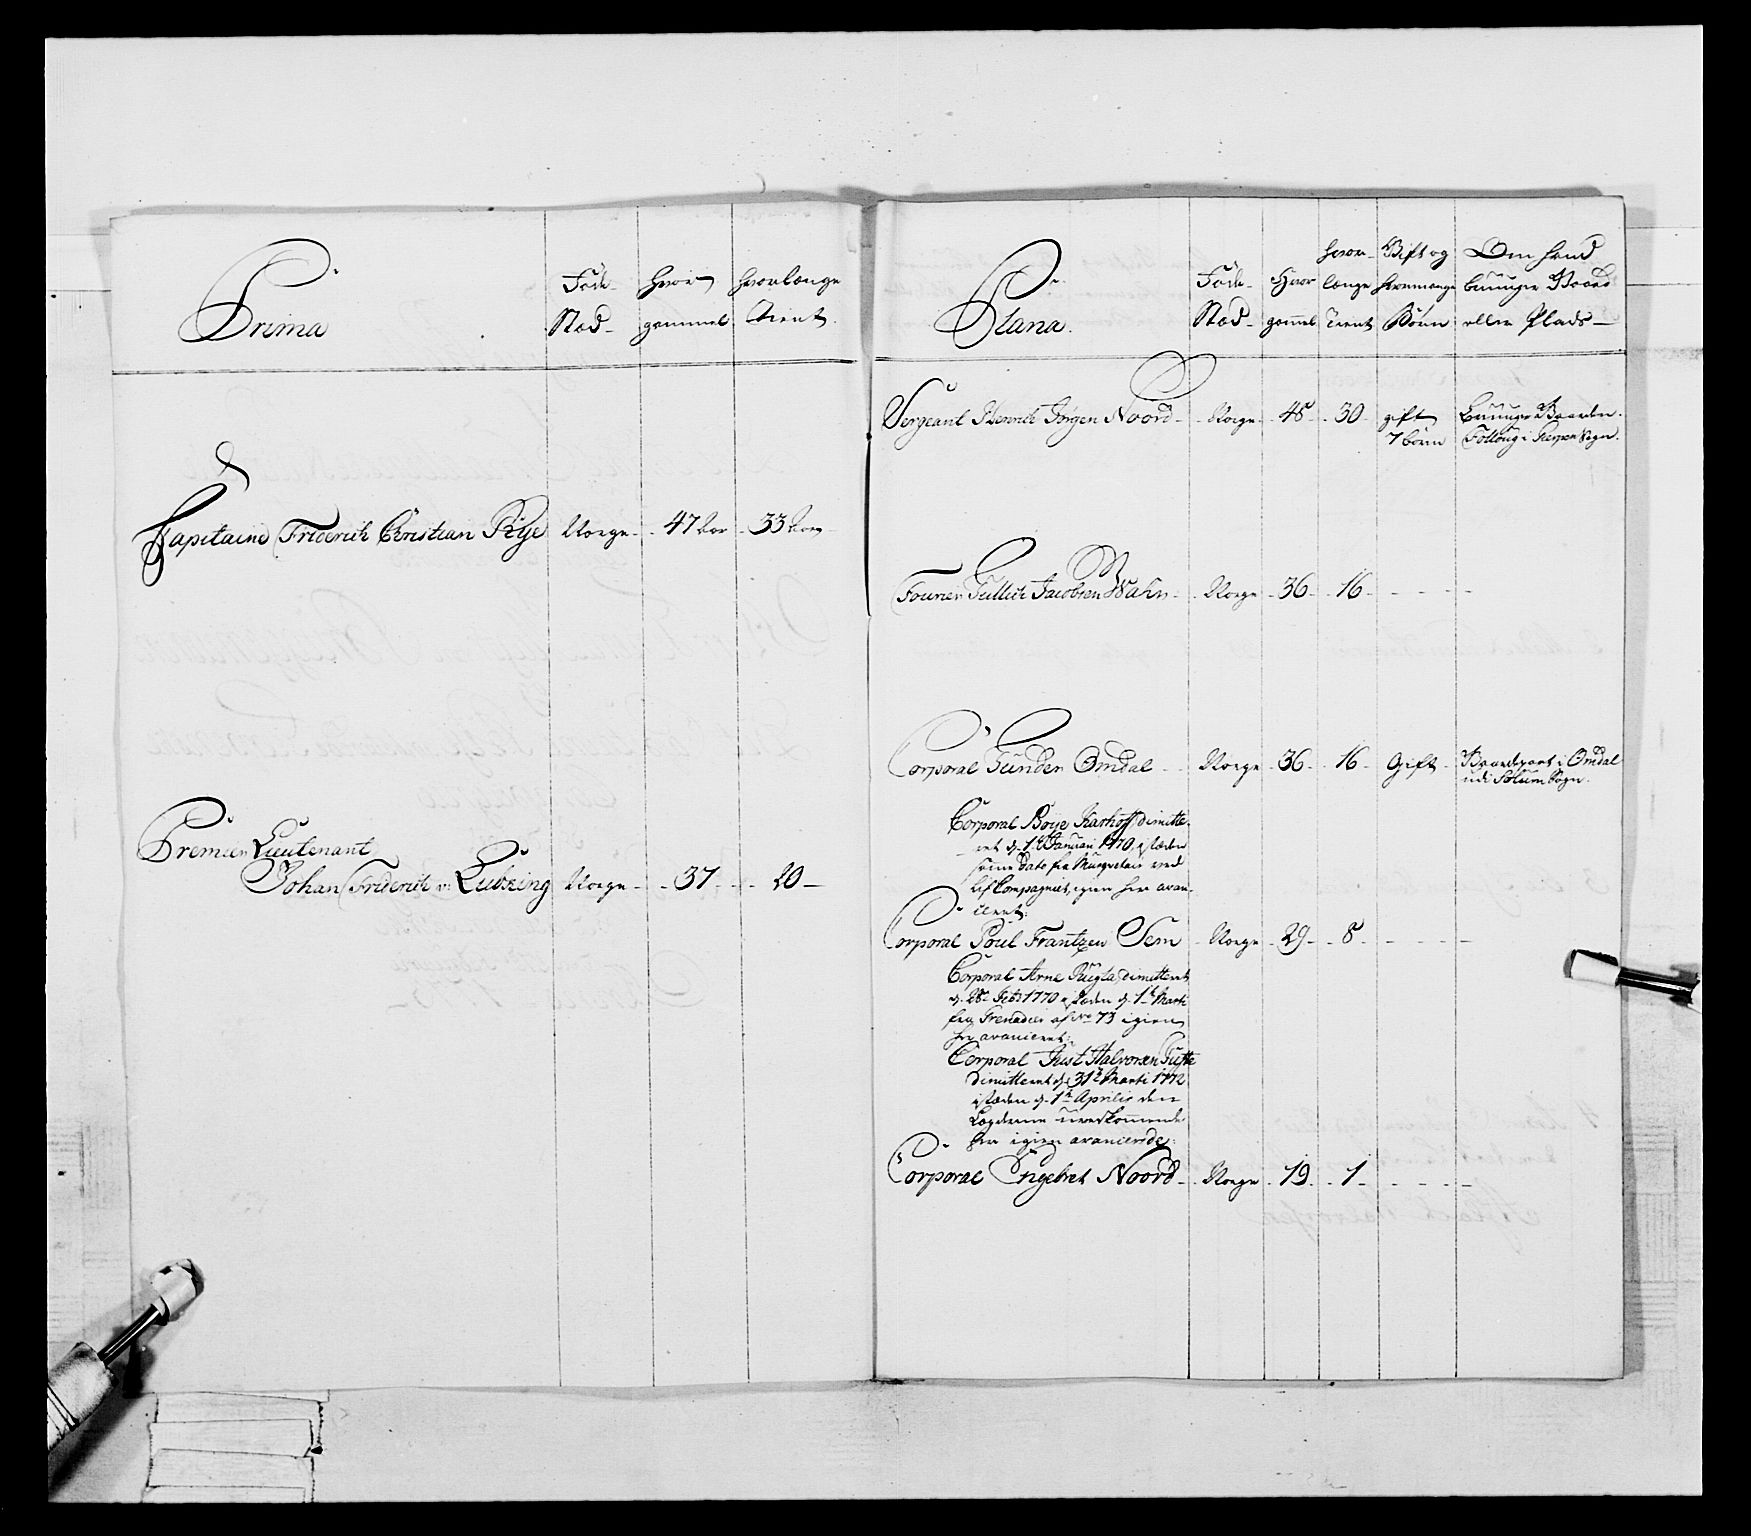 Prima
Føde-
Stæd-
Hvor
gammel
Hvorlænge
Tient.
Capitaine Friderich Christian Rÿe Norge- 47 Aar 33 Aar
Premier Lieutenant
Johan Friderich v: Lübzing Norge- 37 20
Plana.
Føde-
Stæd-
Hvor
gaml
Hvor-
længe
Tient
Gift og
Hvormange
Børn
Om hand
bruuger Gaard
eller Plads
Sergeant Henrich Jørgen Noord- Norge 48 30 gift
7 børn
bruuger Gaarden
i Sogn.
Fourier Tullich Jacobsen Wahn- Norge 36 16
Corporal Gunder Omdal Norge 36 16 Gift- Gaardpart i Omdal
udi Solum Sogn.
Corporal Boye Karhoff dimitte-
ret d. 1te Januari 1770, i stæden
samme Dato fra Munsterskriver ved
Lif Compagniet, igien her avan-
ceret:
Corporal Poul Frantzen Sem Norge 29 8
Corporal Arne Rugla dimitteret
d. 28de Febr 1770 i stæden d. 1te Marti
fra Grenadeer af No 73 igien
her avanceret:
Corporal Just Halvorsen Tufte
dimitteret d. 31te Marti 1772
i stæden d. 1te Aprilis den
her igien avancerede:
Corporal Engebret Noord- Norge 19 1